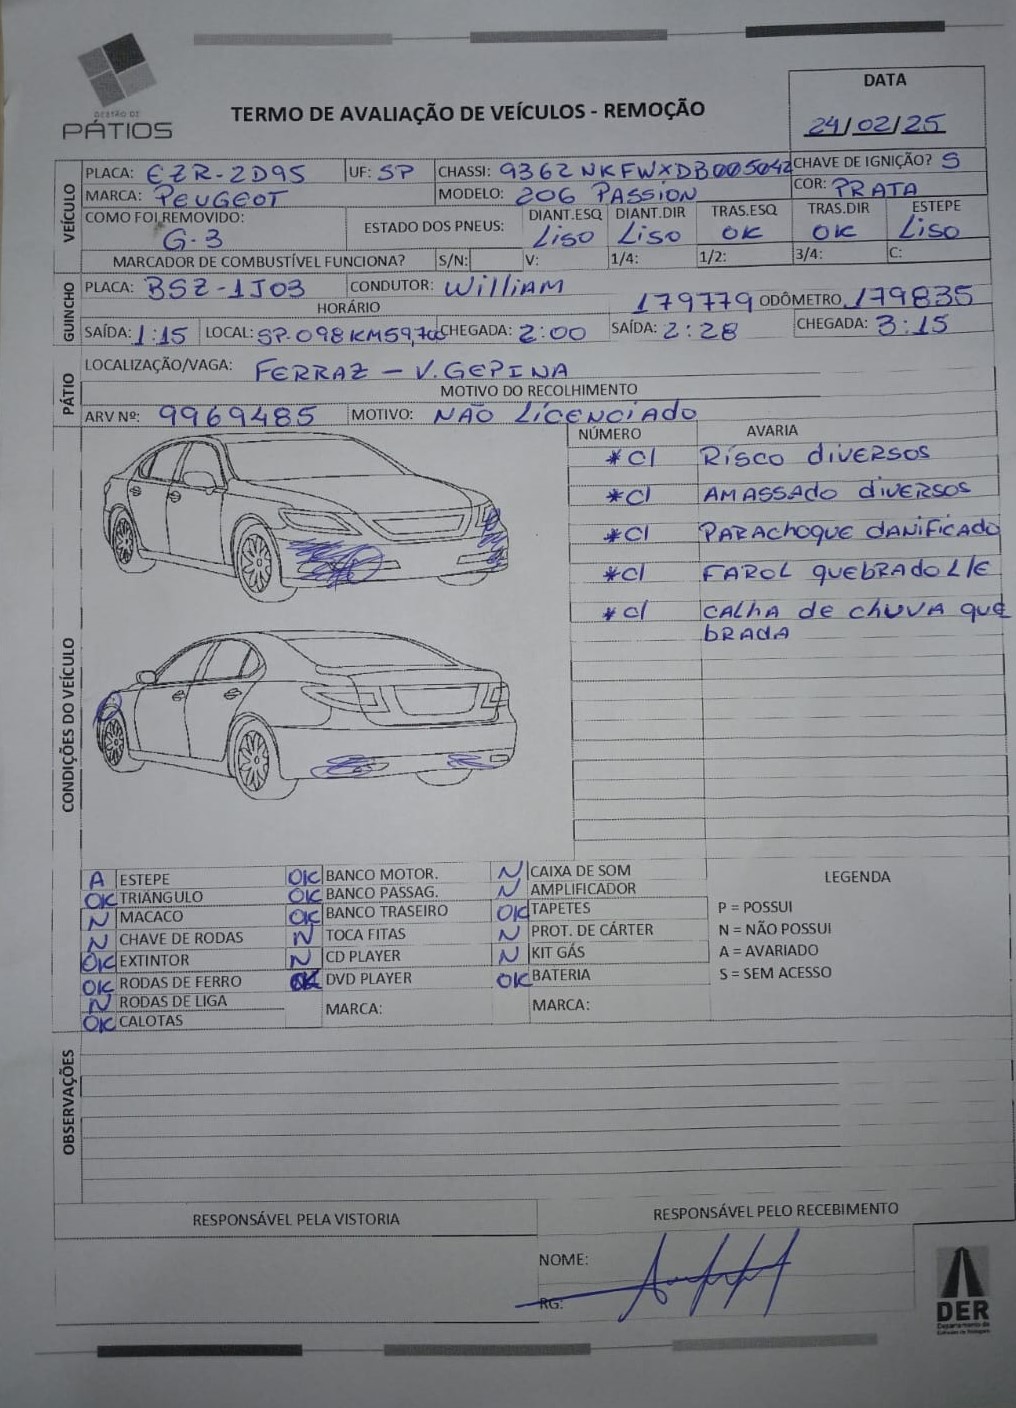 GESTÃO DE
PÁTIOS
TERMO DE AVALIAÇÃO DE VEÍCULOS - REMOÇÃO
DATA
24/02/25
VEÍCULO
PLACA: EZR-2D95 UF: SP CHASSI: 9362NKFWXDB005042 CHAVE DE IGNIÇÃO? S
MARCA: PEUGEOT MODELO: 206 PASSION COR: PRATA
COMO FOI REMOVIDO: G-3 ESTADO DOS PNEUS: DIANT.ESQ LISO DIANT.DIR LISO TRAS.ESQ OK TRAS.DIR OK ESTEPE LISO
MARCADOR DE COMBUSTÍVEL FUNCIONA? S/N: V: 1/4: 1/2: 3/4: C:
GUINCHO
PLACA: BSZ-1J03 CONDUTOR: WilliAM
HORÁRIO 179779 ODÔMETRO 179835
SAÍDA: 1:15 LOCAL: SP-098 KM59,700 CHEGADA: 2:00 SAÍDA: 2:28 CHEGADA: 3:15
PÁTIO
LOCALIZAÇÃO/VAGA: FERRAZ - V.GEPINA
MOTIVO DO RECOLHIMENTO
ARV Nº: 9969485 MOTIVO: NÃO LICENCIADO
CONDIÇÕES DO VEÍCULO
NÚMERO AVARIA
*C/ RISCO diVERSOS
*C/ AMASSAdo diVERSOS
*C/ PARAchoque dANiFicAdo
*C/ FAROL quEBRADO L/E
*C/ CAlhA de chuVA que
bRAdA
A ESTEPE OK BANCO MOTOR. N CAIXA DE SOM LEGENDA
OK TRIÂNGULO OK BANCO PASSAG. N AMPLIFICADOR
N MACACO OK BANCO TRASEIRO OK TAPETES P = POSSUI
N CHAVE DE RODAS N TOCA FITAS N PROT. DE CÁRTER N = NÃO POSSUI
OK EXTINTOR N CD PLAYER N KIT GÁS A = AVARIADO
OK RODAS DE FERRO DVD PLAYER OK BATERIA S = SEM ACESSO
N RODAS DE LIGA MARCA: MARCA:
OK CALOTAS
OBSERVAÇÕES
RESPONSÁVEL PELA VISTORIA RESPONSÁVEL PELO RECEBIMENTO
NOME:
RG:
DER
Departamento de
Estradas de Rodagem